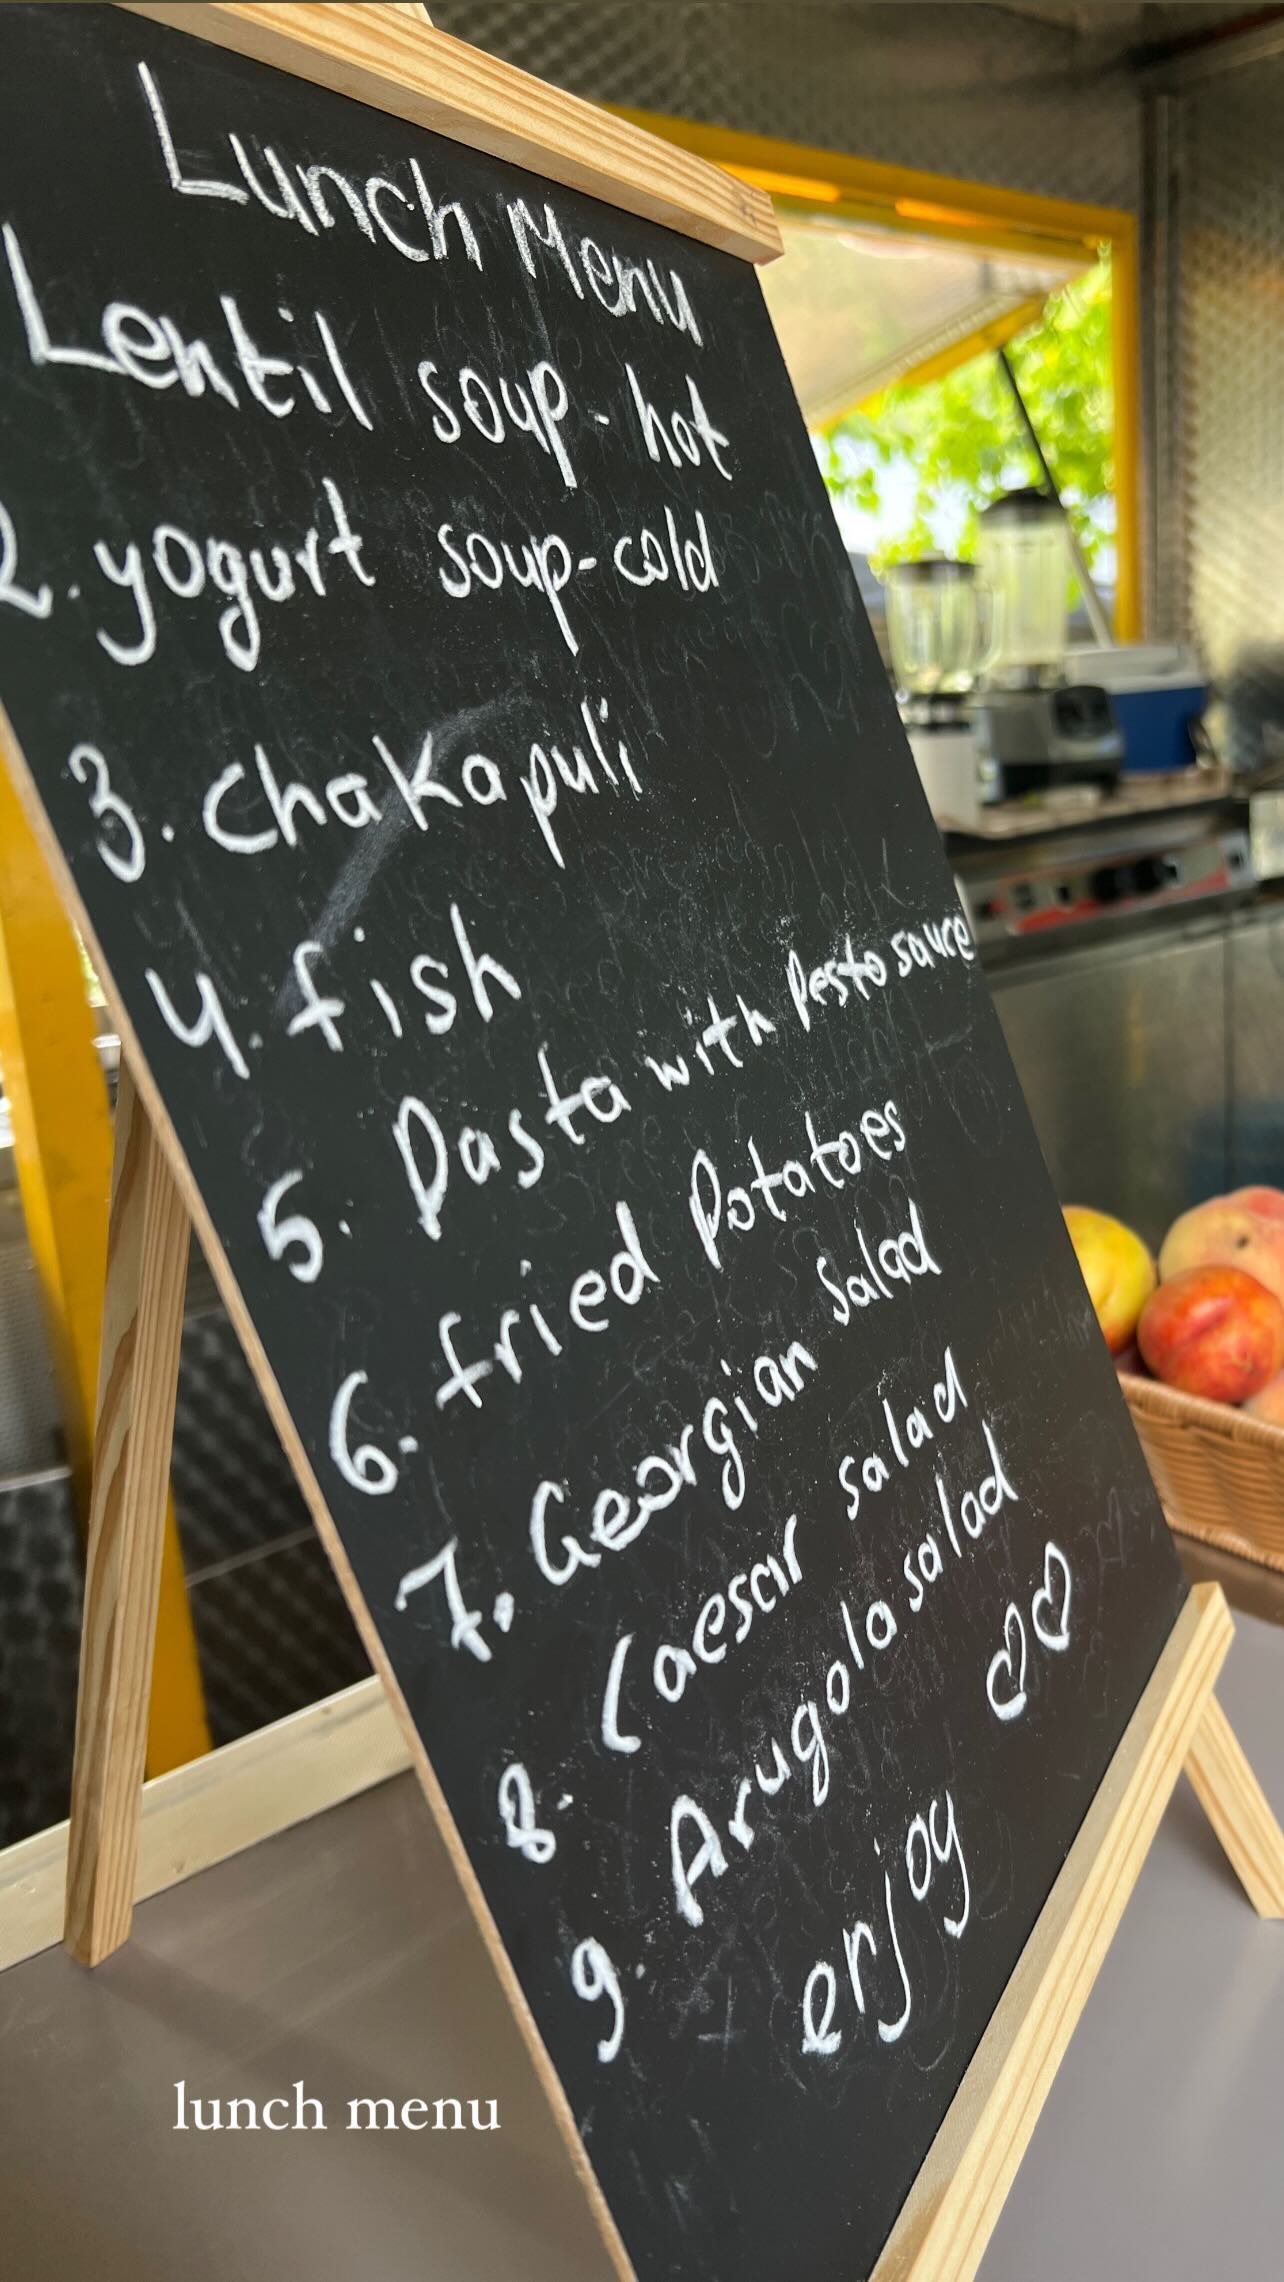 Lunch Menu
Lentil soup - hot
2. yogurt soup - cold
3. Chakapuli
4. fish
5. Pasta with Pesto sauce
6. fried Potatoes
7. Georgian salad
8. Caesar salad
9. Arugola salad
enjoy ♡♡
lunch menu